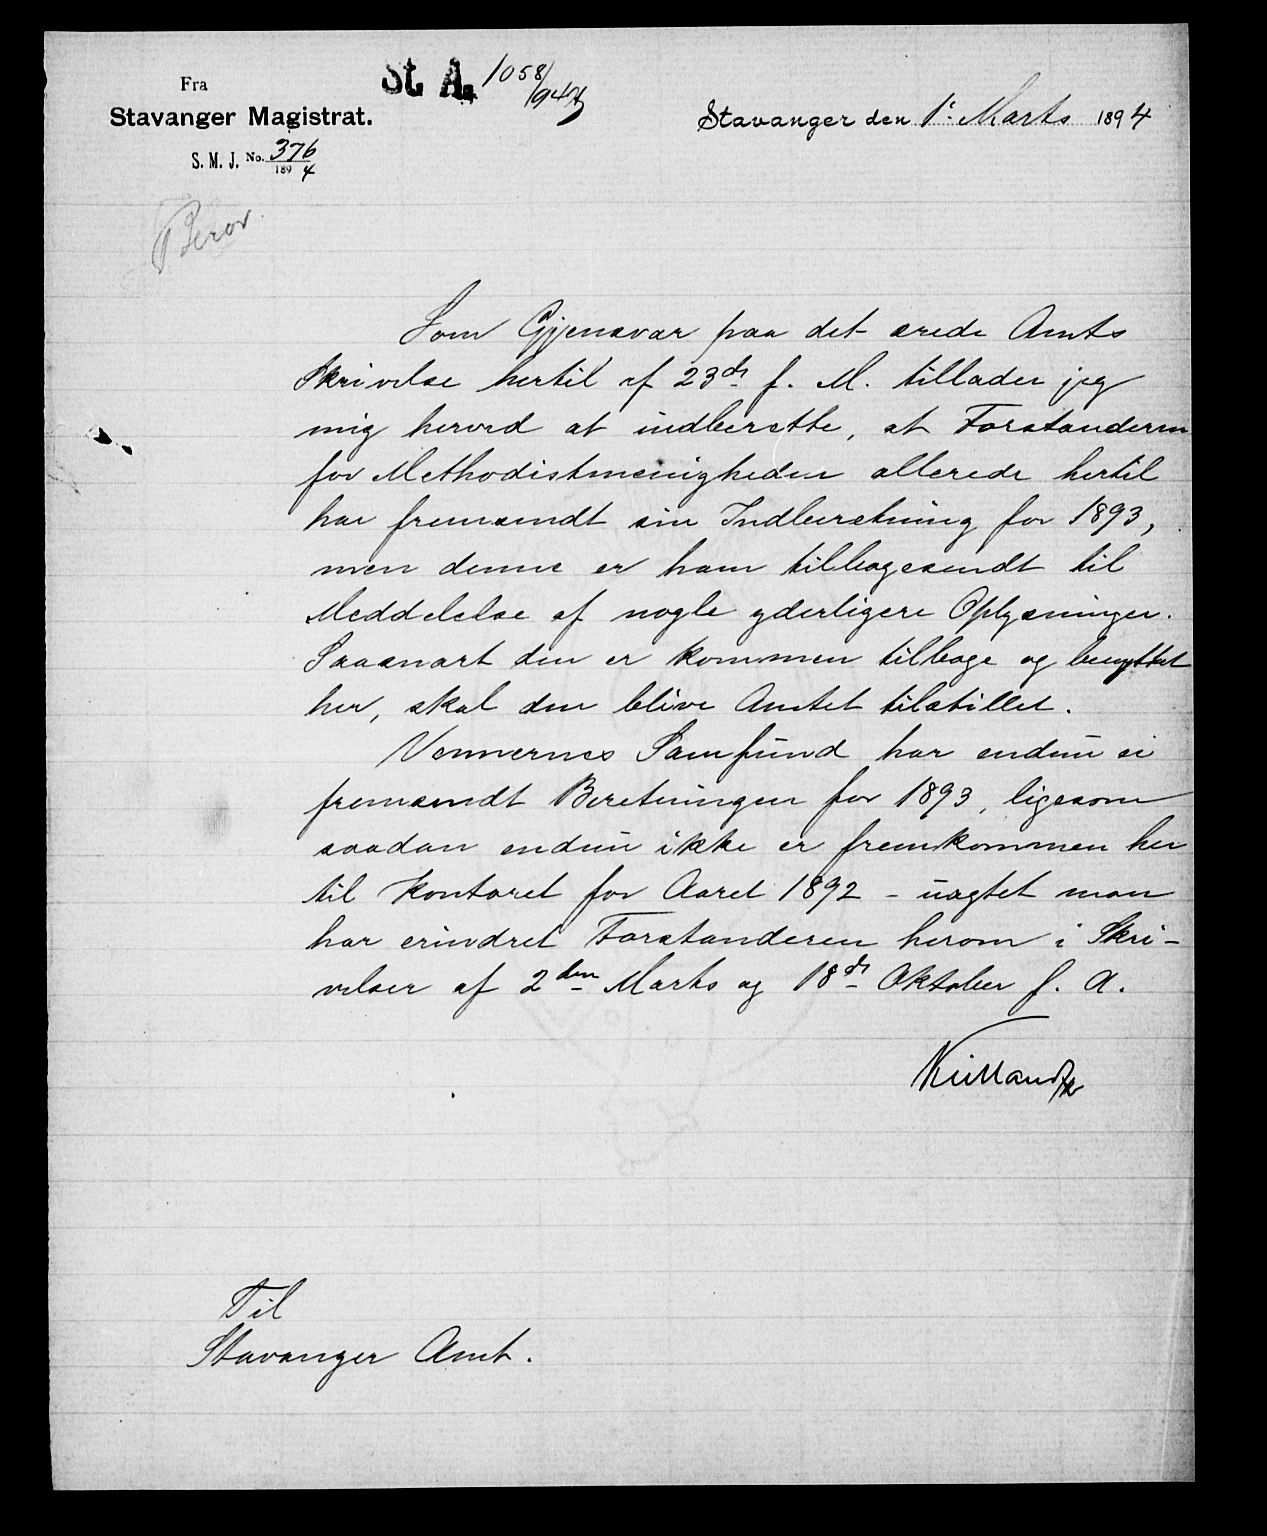 Fra
Stavanger Magistrat.
S. M. J. No. 376
1894
St. A. 1058/94
Stavanger den 1ste Marts 1894
Som Gjensvar paa det ærede Amts
Skrivelse hertil af 23de f. M. tillader jeg
mig herved at indberette, at Forstanderen
for Methodistmenigheden allerede hertil
har fremsendt sin Indberetning for 1893,
men denne er ham tilbagesendt til
Meddelelse af nogle yderligere Oplysninger.
Saasnart den er kommen tilbage og benyttet
her, skal den blive Amtet tilstillet.
Vennernes Samfund har endnu ei
fremsendt Beretningen for 1893, ligesom
saadan endnu ikke er fremkommen her
til Kontoret for Aaret 1892 – uagtet man
har erindret Forstanderen herom i Skri-
velser af 2den Marts og 18de Oktober f. A.
Kielland
Til
Stavanger Amt.